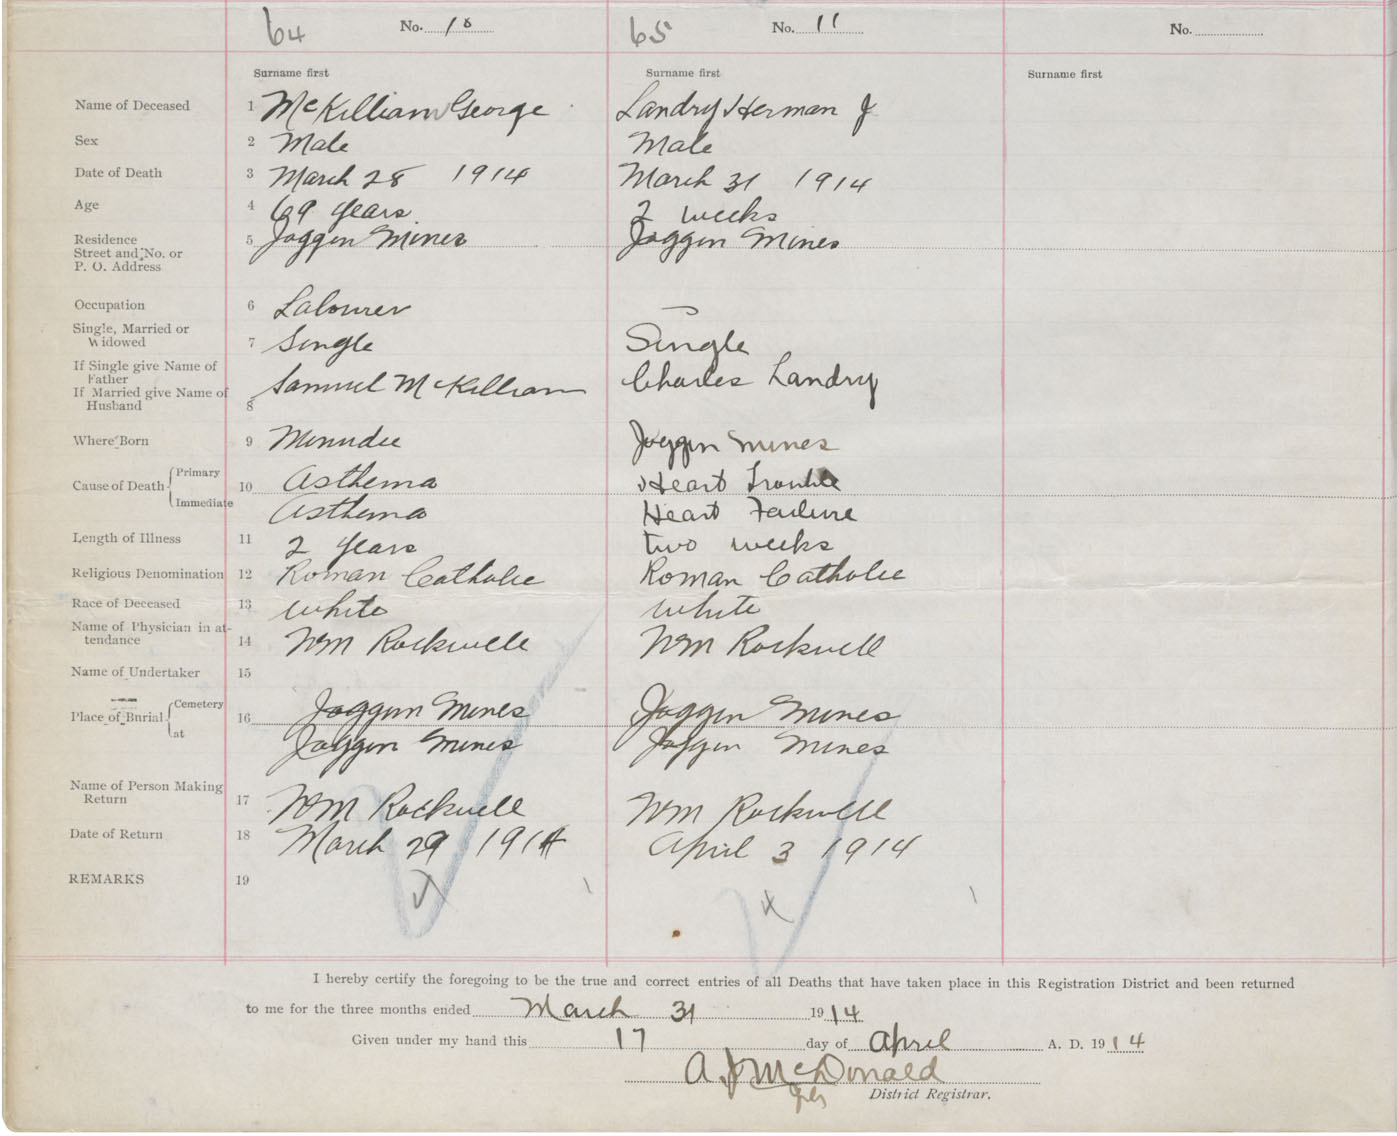 64 No. 10 65 No. 11 No.
Surname first Surname first Surname first
Name of Deceased 1 McKilliam George Landry Herman J
Sex 2 Male Male
Date of Death 3 March 28 1914 March 31 1914
Age 4 69 years 2 weeks
Residence 5 Joggin Mines Joggin Mines
Street and No. or
P. O. Address
Occupation 6 Labourer —
Single, Married or
Widowed 7 Single Single
If Single give Name of
Father
If Married give Name of Samuel McKilliam Charles Landry
Husband 8
Where Born 9 Minudie Joggin Mines
Cause of Death Primary 10 Asthema Heart Trouble
Immediate Asthema Heart Failure
Length of Illness 11 2 years two weeks
Religious Denomination 12 Roman Catholic Roman Catholic
Race of Deceased 13 White White
Name of Physician in at-
tendance 14 Wm Rockwell Wm Rockwell
Name of Undertaker 15
Place of Burial Cemetery 16 Joggin Mines Joggin Mines
at Joggin Mines Joggin Mines
Name of Person Making
Return 17 Wm Rockwell Wm Rockwell
Date of Return 18 March 29 1914 April 3 1914
REMARKS 19
I hereby certify the foregoing to be the true and correct entries of all Deaths that have taken place in this Registration District and been returned
to me for the three months ended March 31 1914
Given under my hand this 17 day of April A. D. 1914
A. J. McDonald
District Registrar.